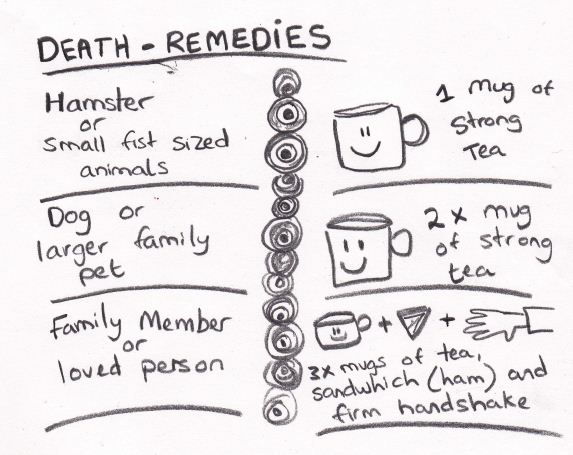 DEATH - REMEDIES
Hamster
or
Small fist sized
animals
1 mug of
strong
Tea
Dog or
larger family
pet
2x mug
of strong
tea
Family Member
or
loved person
+ +
3x mugs of tea,
sandwhich (ham) and
firm handshake